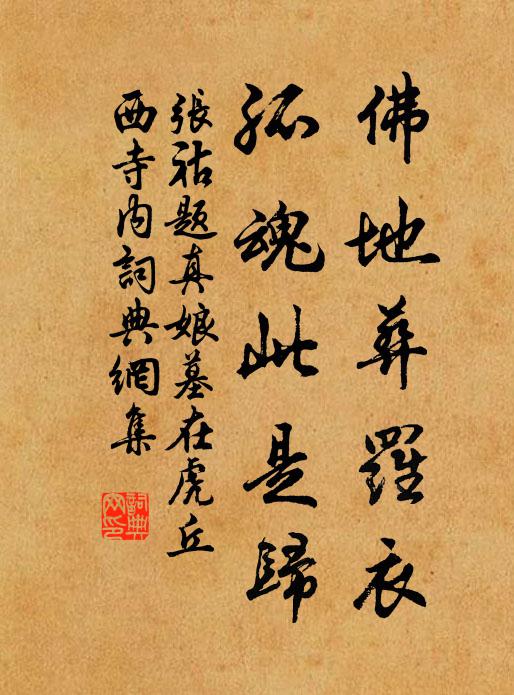 佛地葬羅衣
孤魂此是歸
張祜題真娘墓在虎丘
西寺內詞典網集
詞典網印